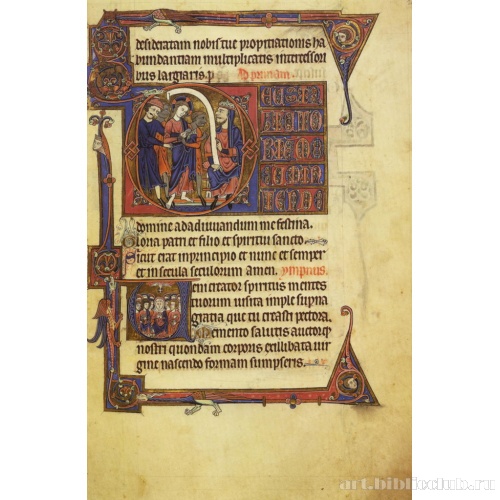 desideratam nobis tue propitiationis ha
bundantiam multiplicatis intercessori
bus largiaris. p Ad primam
DEUS IN
ADIUTO
RIUM M
EUM IN
TENDE
Domine ad adiuuandum me festina.
Gloria patri et filio et spiritui sancto.
Sicut erat in principio et nunc et semper
et in secula seculorum amen. ympnus.
Veni creator spiritus mentes
tuorum uisita imple supna
gratia que tu creasti pectora.
Memento salutis auctor q
nostri quondam corporis ex illibata uir
gine nascendo formam sumpseris.
art.biblioclub.ru